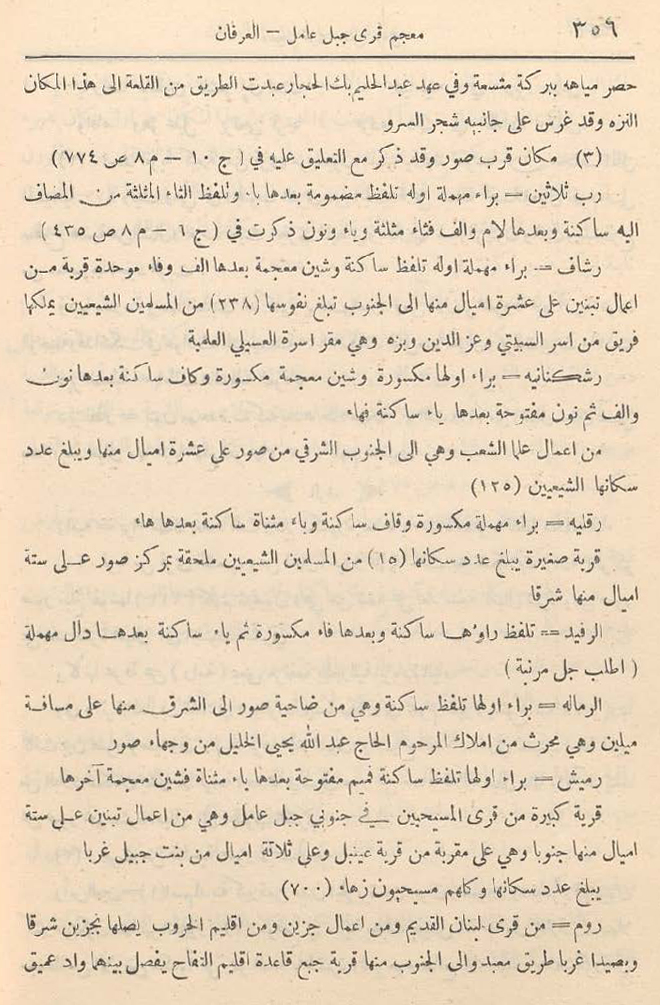 ٣٥٦ معجم قرى جبل عامل – العرفان
حصر مياهه ببركة متسعة وفي عهد عبد الحليم بك الحجار عبدت الطريق من القلعة الى هذا المكان
النزه وقد غرس على جانبيه شجر السرو
(٣) مكان قرب صور وقد ذكر مع التعليق عليه في ( ج ١٠ – م ٨ ص ٧٧٤ )
رب ثلاثين = براء مهملة اوله تلفظ مضمومة بعدها باء وتلفظ الثاء المثلثة من المضاف
اليه ساكنة وبعدها لام والف فثاء مثلثة وياء ونون ذكرت في ( ج ٦ – م ٨ ص ٤٣٥ )
رشاف = براء مهملة اوله تلفظ ساكنة وشين معجمة بعدها الف وفاء موحدة قرية من
اعمال تبنين على عشرة اميال منها الى الجنوب تبلغ نفوسها (٢٣٨) من المسلمين الشيعيين يملكها
فريق من اسر السبيتي وعز الدين وبزه وهي مقر اسرة العسيلي العلمية
رشكنانيه = براء اولها مكسورة وشين معجمة مكسورة وكاف ساكنة بعدها نون
والف ثم نون مفتوحة بعدها ياء ساكنة فهاء
من اعمال علما الشعب وهي الى الجنوب الشرقي من صور على عشرة اميال منها ويبلغ عدد
سكانها الشيعيين (١٢٥)
رقليه = براء مهملة مكسورة وقاف ساكنة وياء مثناة ساكنة بعدها هاء
قرية صغيرة يبلغ عدد سكانها (١٥) من المسلمين الشيعيين ملحقة بمركز صور عــلى ستة
اميال منها شرقا
الرفيد == تلفظ راؤها ساكنة وبعدها فاء مكسورة ثم ياء ساكنة بعدهــا دال مهملة
( اطلب جل مرنبة )
الرماله = براء اولها تلفظ ساكنة وهي من ضاحية صور الى الشرق منها على مسافة
ميلين وهي محرث من املاك المرحوم الحاج عبد الله يحيى الخليل من وجهاء صور
رميش = براء اولها تلفظ ساكنة فميم مفتوحة بعدها ياء مثناة فشين معجمة آخرها
قرية كبيرة من قرى المسيحيين في جنوبي جبل عامل وهي من اعمال تبنين عــلى ستة
اميال منها جنوبا وهي على مقربة من قرية عيتبل وعلى ثلاثة اميال من بنت جبيل غربا
يبلغ عدد سكانها وكلهم مسيحيون زهاء (٧٠٠)
روم = من قرى لبنان القديم ومن اعمال جزين ومن اقليم الخروب يصلها بجزين شرقا
وبصيدا غربا طريق معبد والى الجنوب منها قرية جبع قاعدة اقليم التفاح يفصل بينهما واد عميق